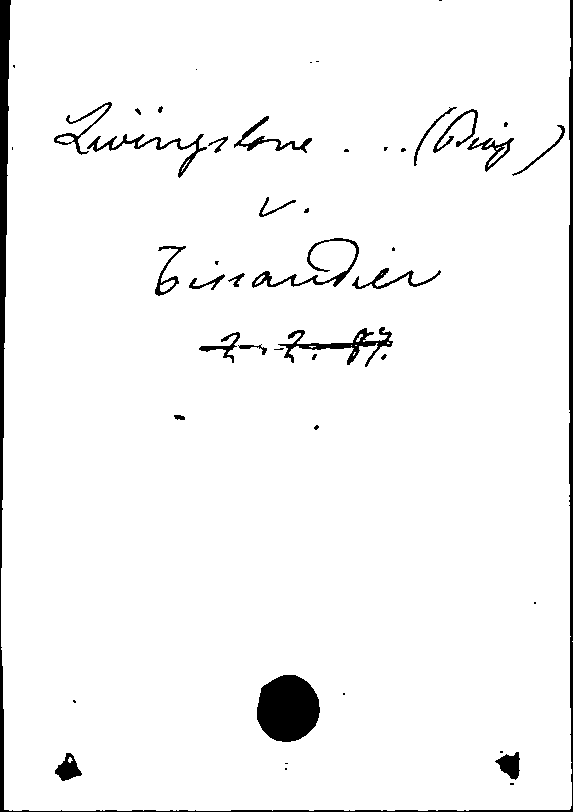 Livingstone . . . (Biog)
v.
Tissandier
2. 2. 87.